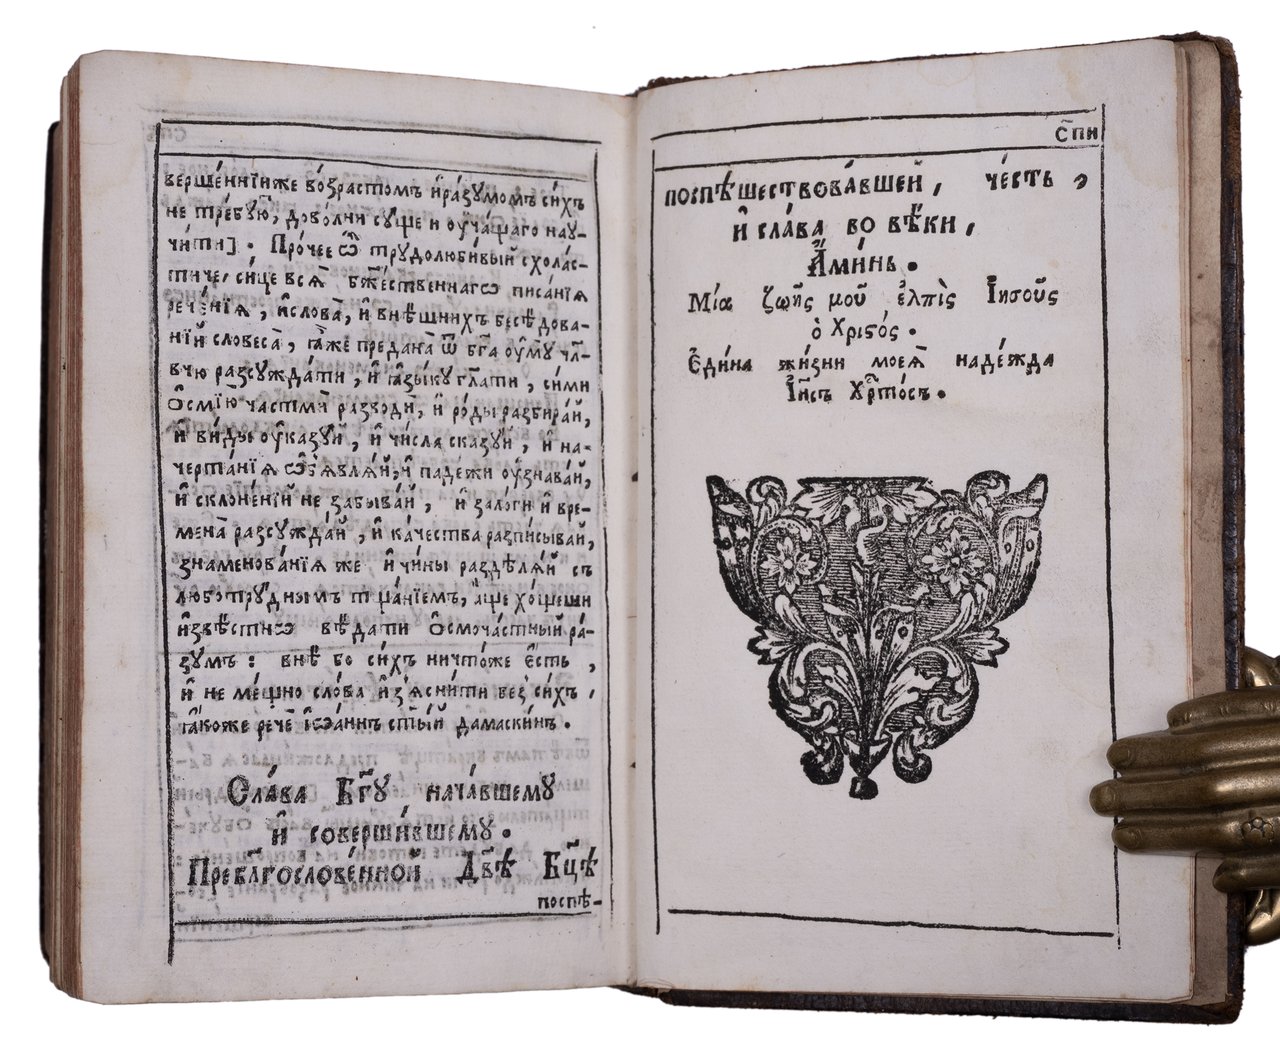 вершє́ннїи же во́зрастомъ и҆ ра́зумомъ си́хъ
не тре́бꙋю̑, дово́лни сꙋ́ще и ᲂу҆ча́щаго наꙋ-
чи́ти]. Про́чее ѿ трꙋдолюби́вый схола́с-
тиче, си́це всѧ̑ бж҃е́ственнагѡ писа́нїѧ
рече́нїѧ, и҆ слова̀, и҆ внѣ́шнихъ бесѣ́дова-
нїй словеса̀, ꙗ҆̀же преда́на ѿ бг҃а ᲂу҆мꙋ̀ чл҃-
вчю разсꙋжда́ти, и҆ ꙗ҆зы́кꙋ гл҃ати, си́ми
ѻ҆смїю̀ частмѝ разводѝ, и҆ ро́ды разбира́й,
и҆ ви́ды ᲂу҆казꙋ́й, и҆ чи́сла сказꙋ́й, и҆ на-
черта́нїѧ ѡ҆б̾ѧвлѧ́й, и҆ падежи ᲂу҆знава́й,
и҆ склоне́нїй не забыва́й, и҆ зало́ги и҆ вре-
мена̀ разсꙋжда́й, и҆ ка́чества распи́сывай,
знаменова́нїѧ же и҆ чи́ны раздѣлѧ́й съ
люботрꙋ́днымъ тща́нїемъ, а҆́ще хо́щеши
и҆звѣ́стнѡ вѣ́дати ѻ҆смочастный ра́-
зꙋмъ: внѣ̀ бо си́хъ ничто́же є҆́сть,
и҆ не мо́щно сло́ва и҆з̾ѧсни́ти без̾ си́хъ,
ꙗ҆́коже речѐ і҆ѡа́ннъ ст҃ы́й дамаски́нъ.
Сла́ва Бг҃ꙋ нача́вшемꙋ
и҆ соверши́вшемꙋ.
Пребл҃гослове́нной Дв҃ѣ Бц҃ѣ
поспѣ-
с҃пи
поспѣ́шествова́вшей, че́сть,
и҆ сла́ва во вѣ́ки,
А҆ми́нь.
Μία ζωῆς μοῦ ἐλπὶς Ἰησοῦς
ὁ Χριϛός.
Є҆ди́на жи́зни моеѧ̀ наде́жда
І҆и҃съ Хрⷭ҇то́съ.